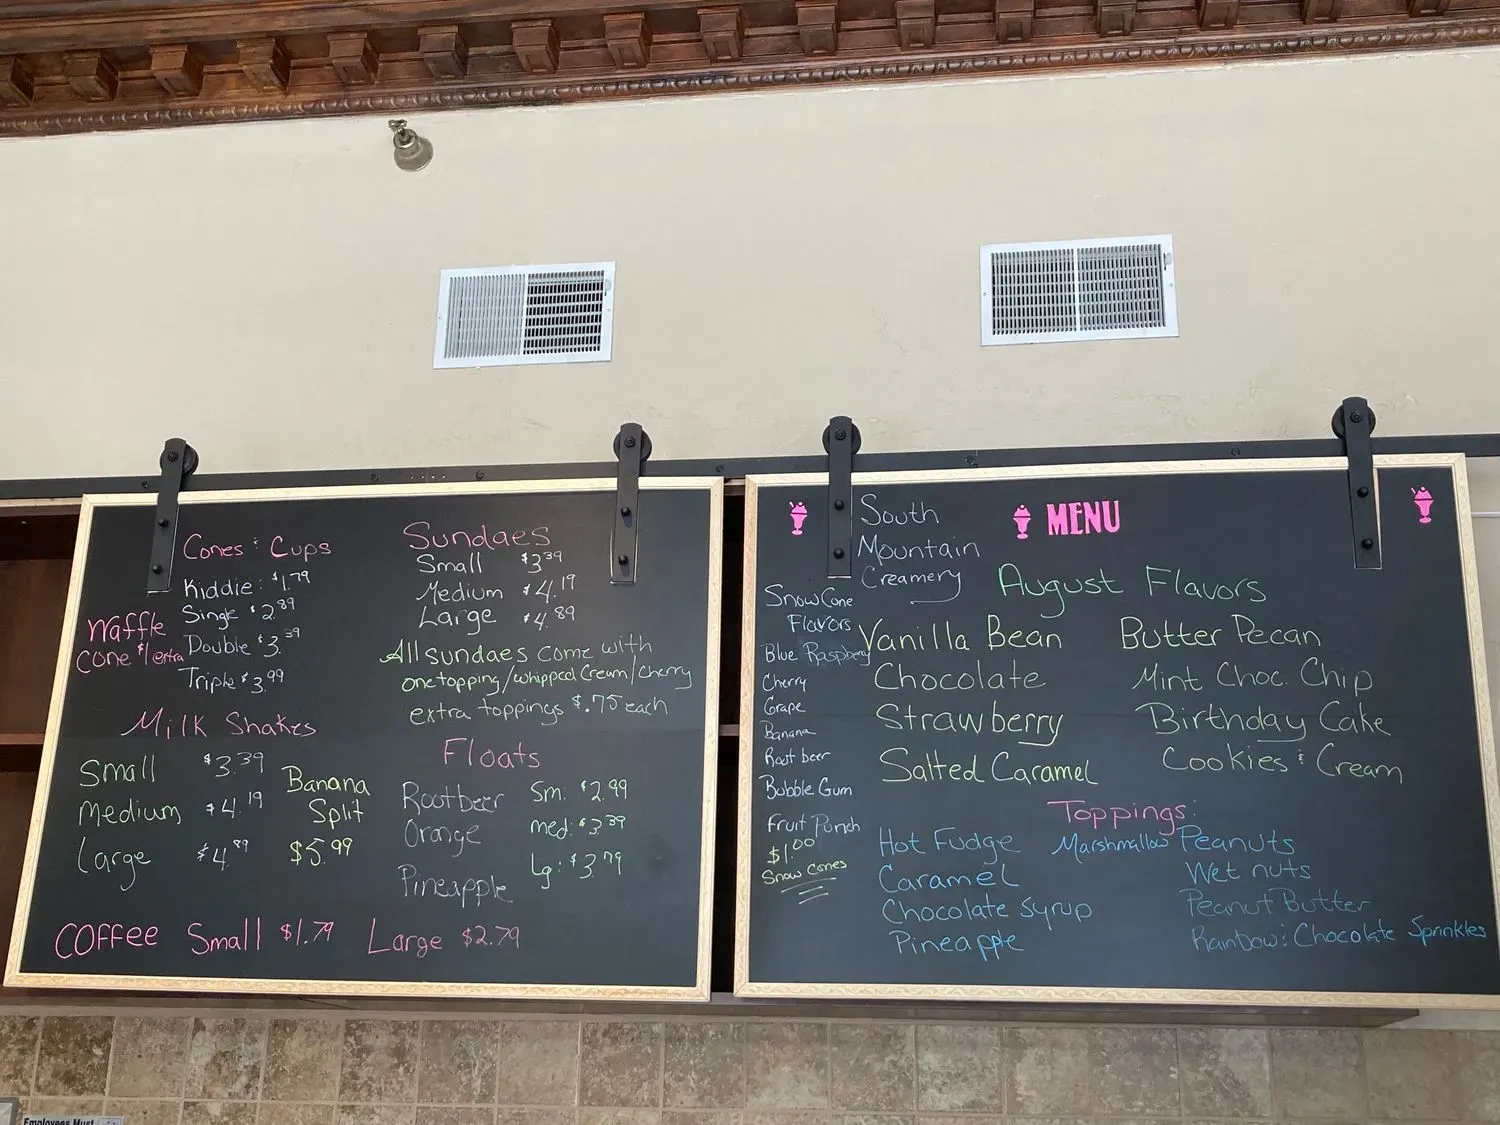 Cones & Cups
Kiddie: $1.79
Single $2.89
Double $3.39
Triple $3.99
Waffle
Cone $1 extra
Sundaes
Small $3.39
Medium $4.19
Large $4.89
All sundaes come with
one topping/whipped Cream/Cherry
extra toppings $.75 each
Milk Shakes
Small $3.39
Medium $4.19
Large $4.89
Banana
Split
$5.99
Floats
Rootbeer
Orange
Pineapple
Sm: $2.99
med: $3.39
Lg: $3.79
COFFee Small $1.79 Large $2.79
South
Mountain
Creamery
MENU
August Flavors
Vanilla Bean
Chocolate
Strawberry
Salted Caramel
Butter Pecan
Mint Choc. Chip
Birthday Cake
Cookies & Cream
Snow Cone
Flavors
Blue Raspberry
Cherry
Grape
Banana
Root beer
Bubble Gum
Fruit Punch
$1.00
Snow Cones
Toppings:
Hot Fudge
Caramel
Chocolate Syrup
Pineapple
Marshmallow
Peanuts
Wet nuts
Peanut Butter
Rainbow & Chocolate Sprinkles
Employees Must